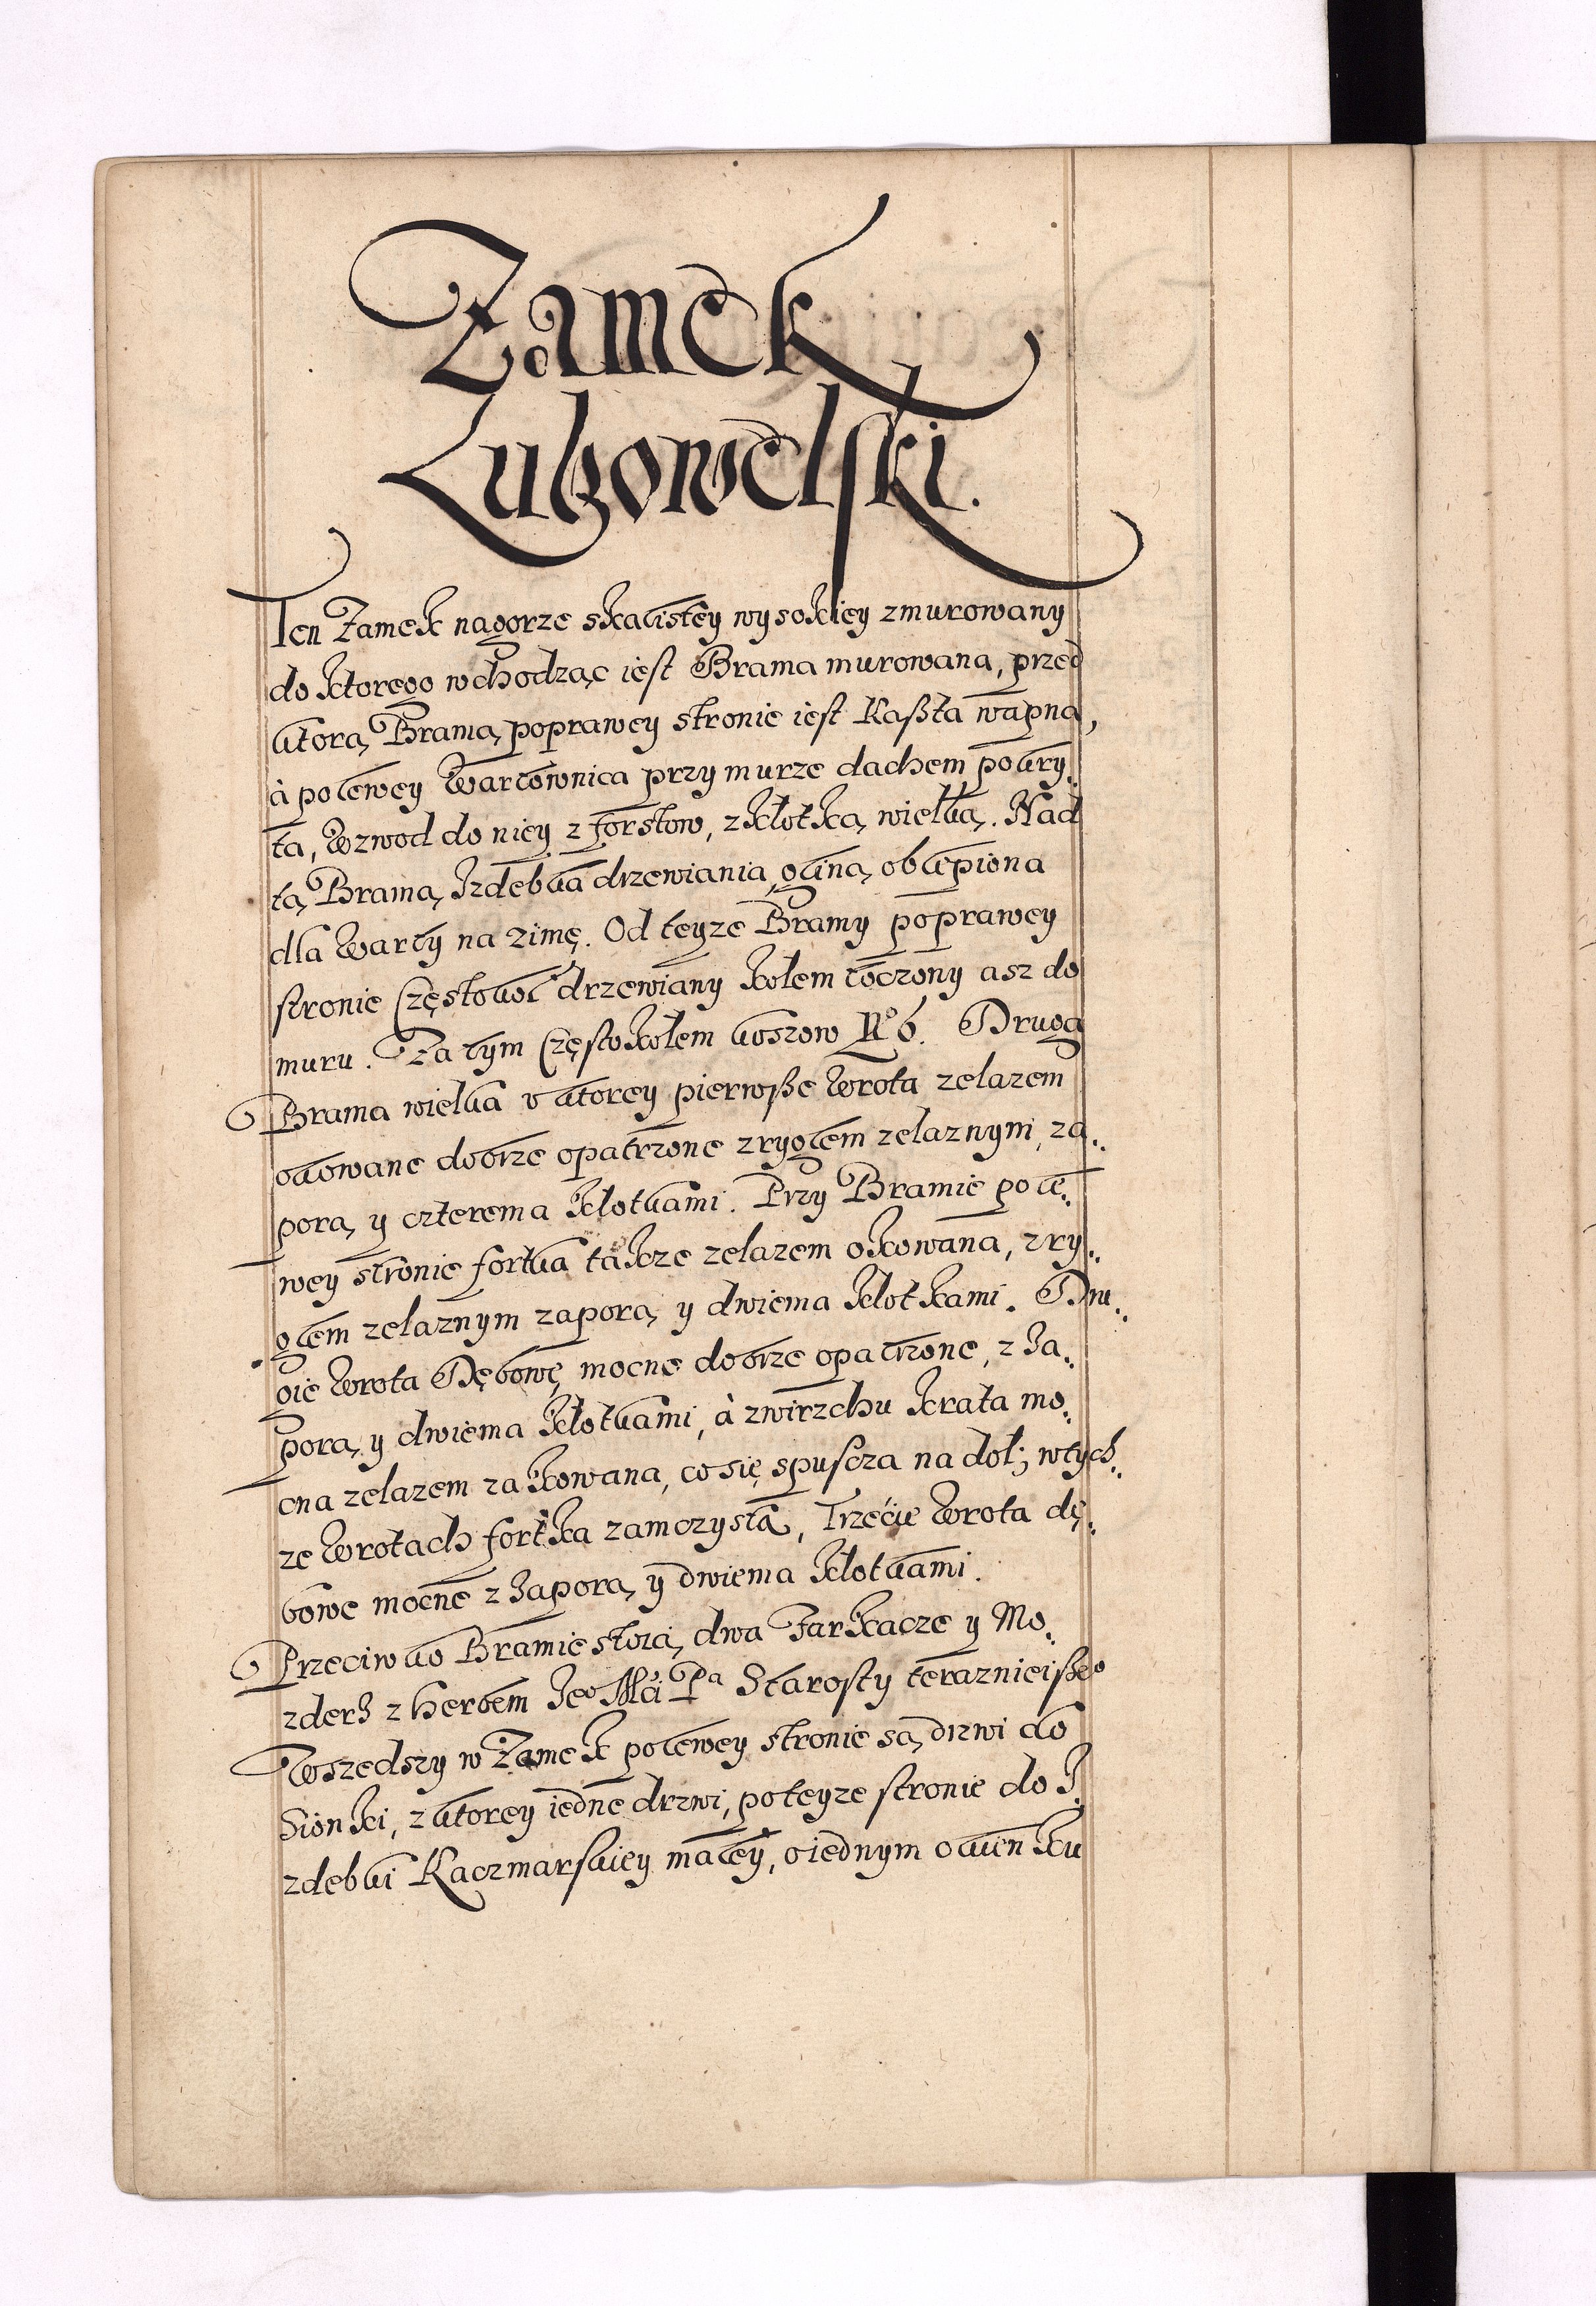 Zamek
Lubowelski.
Ten Zamek nagorze skalistey wysokiey zmurowany
do ktorego wchodząc iest Brama murowana, przed
ktorą Bramą poprawey stronie iest Kaszta wapna,
à polewey Wartownica przy murze dachem pokry.
ta, Wzwod do niey z forstow, z kłotką wielką. Nad
tą Bramą Izdebka drzewiania gliną oblepiona
dla Warty na zimę. Od teyze Bramy poprawey
stronie Częstokoł drzewiany kołem toczony asz do
muru. Za tym Częstokołem koszow No 6. Druga
Brama wielka v ktorey pierwsze Wrota zelazem
okowane dobrze opatrzone z ryglem zelaznym, za..
porą y czterema kłotkami. Przy Bramie po le..
wey stronie fortka takze zelazem okowana, z ry..
glem zelaznym zaporą y dwiema kłotkami. Dru..
gie Wrota Dębowę mocne dobrze opatrzone, z Za..
porą y dwiema kłotkami, à zwirzchu krata mo..
cna zelazem zakowana, co się spuscza na doł; wtych..
ze Wrotach fortka zamczysta, Trzecie Wrota dę..
bowe mocne z Zaporą y dwiema kłotkami.
Przeciwko Bramie stoią dwa Tarkacze y Mo..
zderz z Herbem Jeo Mći Pa Starosty teraznieiszeo
Wszedszy w Zamek polewey stronie są drzwi do
Sionki, z ktorey iedne drzwi, poteyze stronie do I.
zdebki Kaczmarskiey małey, o iednym okienku